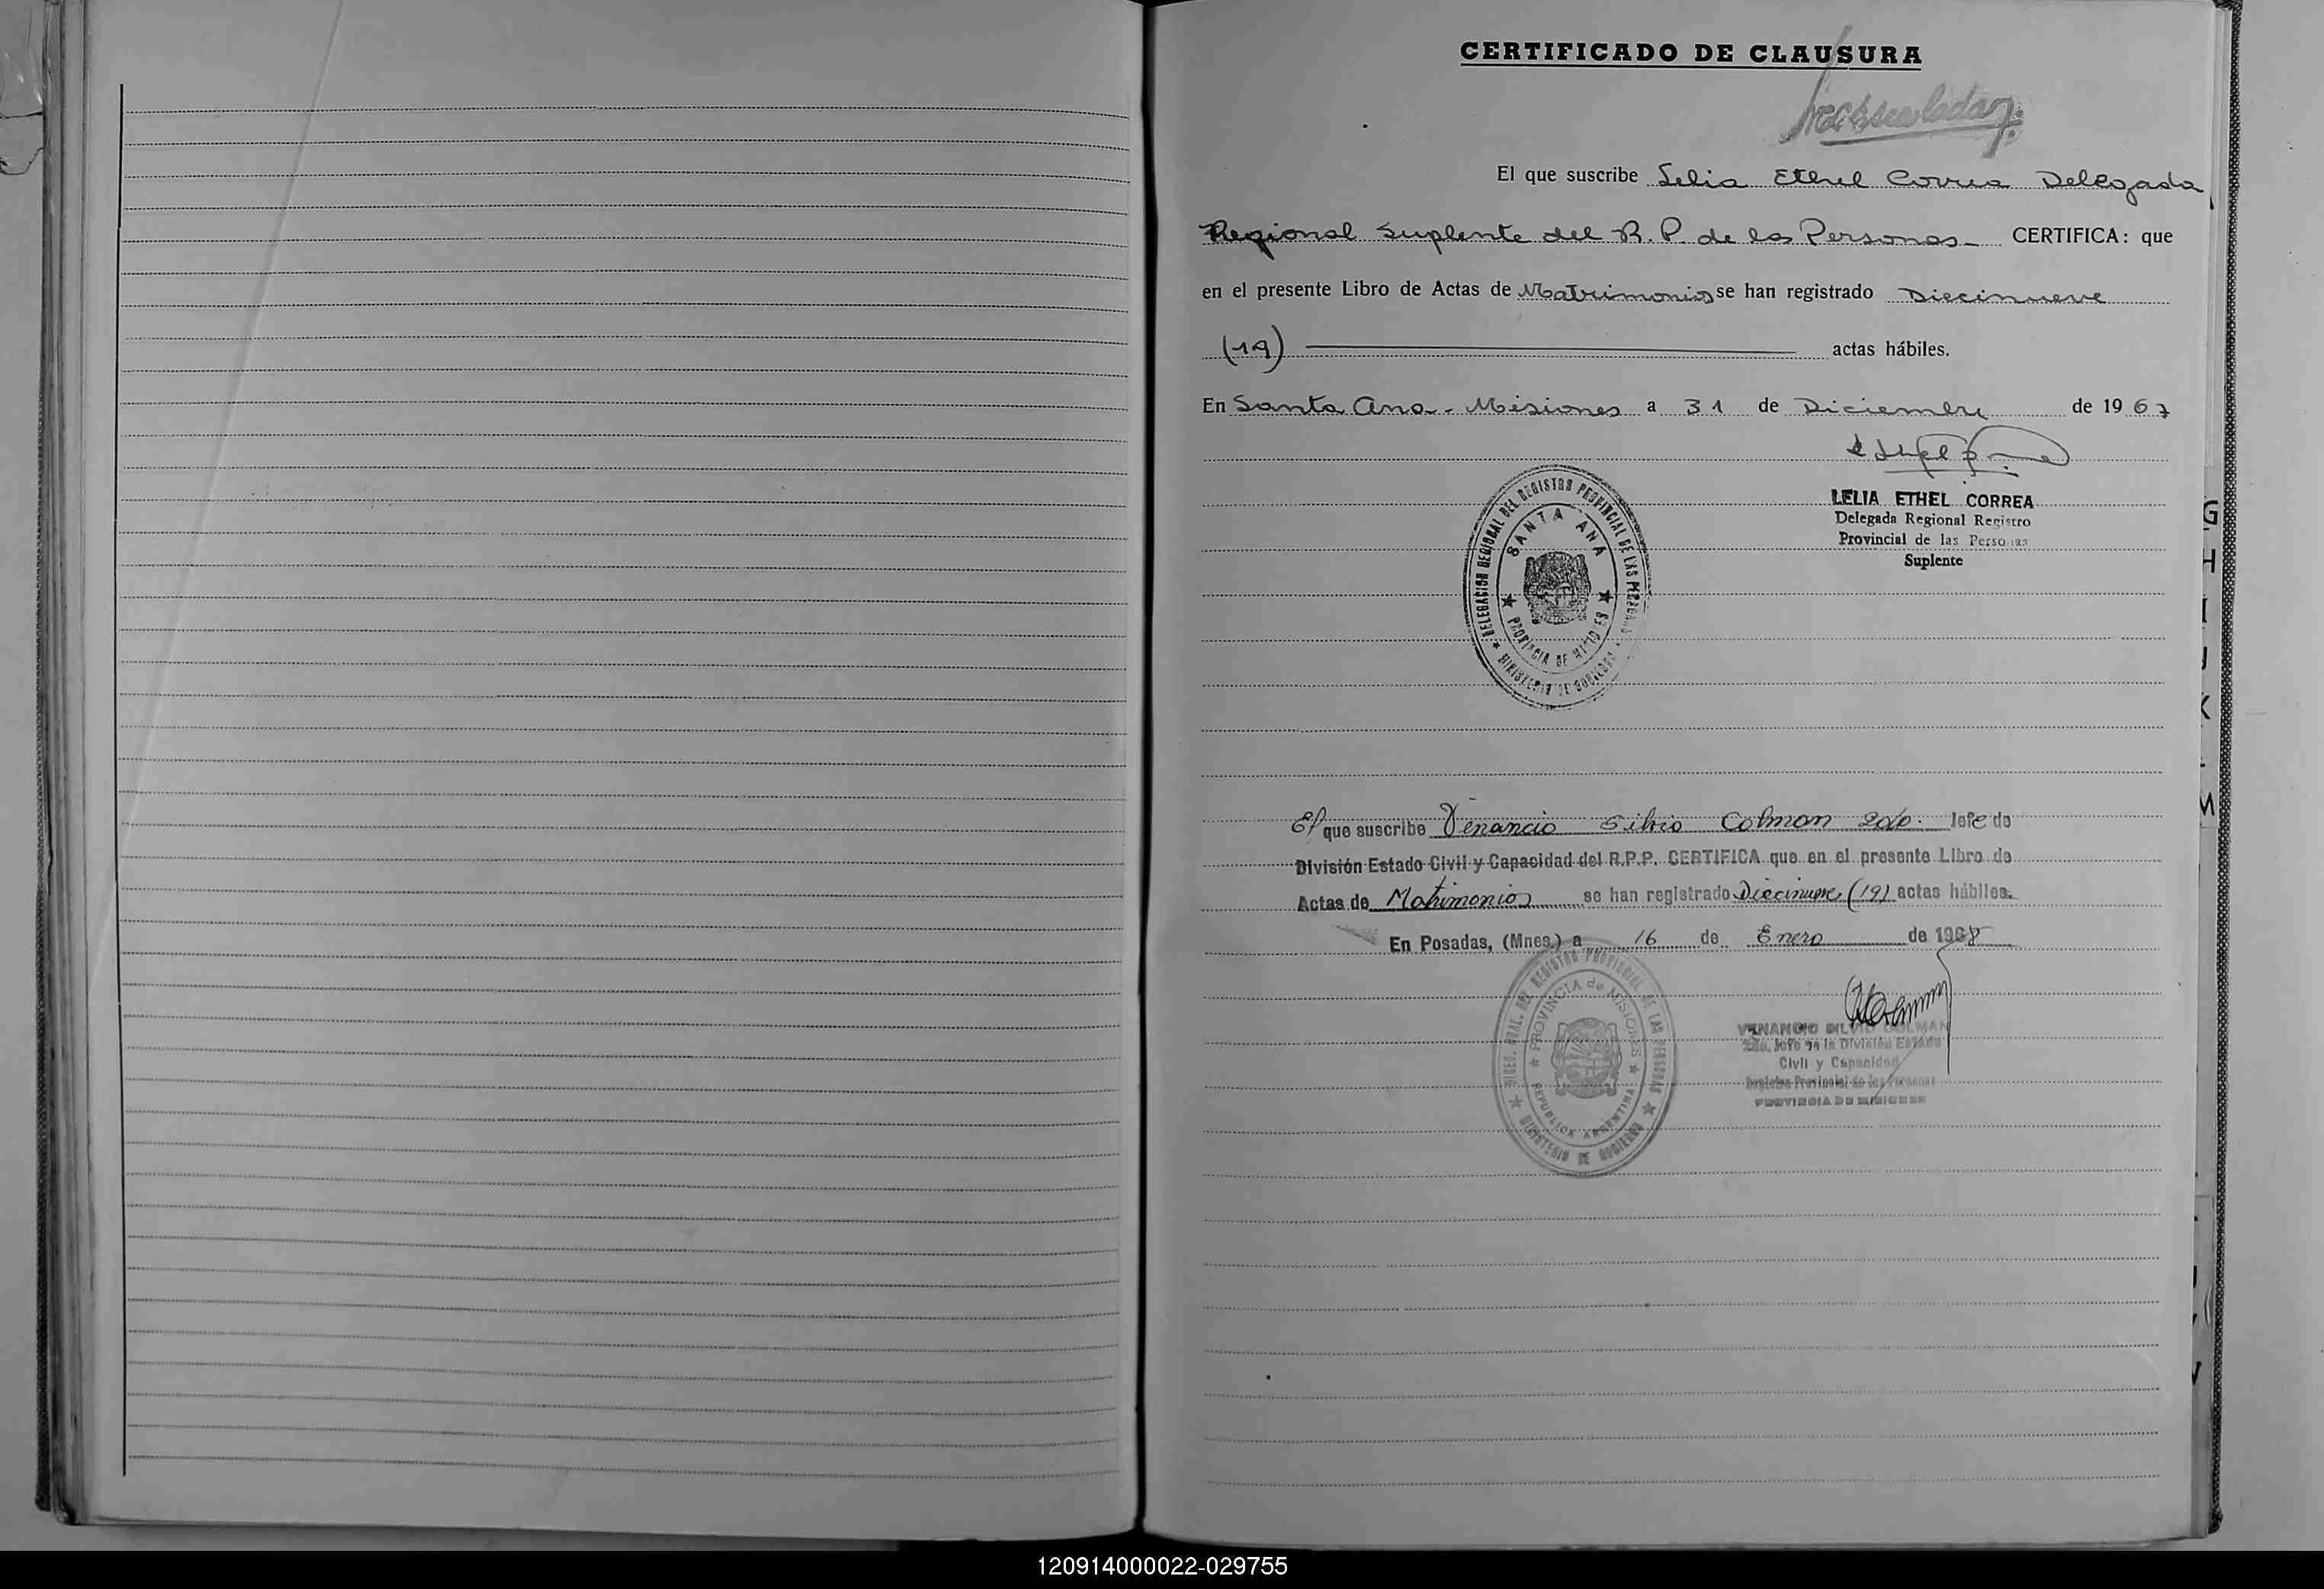 CERTIFICADO DE CLAUSURA
El que suscribe Lelia Ethel Correa Delegada
Regional Suplente del R. P. de las Personas CERTIFICA: que
en el presente Libro de Actas de Matrimonios se han registrado Diecinueve
(19) actas hábiles.
En Santa Ana - Misiones a 31 de Diciembre de 1967
LELIA ETHEL CORREA
Delegada Regional Registro
Provincial de las Personas
Suplente
DELEGACION REGIONAL DEL REGISTRO PROVINCIAL DE LAS PERSONAS
MINISTERIO DE GOBIERNO
SANTA ANA
PROVINCIA DE MISIONES
El que suscribe Venancio Silvio Colman 2do. Jefe de
División Estado Civil y Capacidad del R.P.P. CERTIFICA que en el presente Libro de
Actas de Matrimonios se han registrado Diecinueve (19) actas hábiles.
En Posadas, (Mnes.) a 16 de Enero de 1968
VENANCIO SILVIO COLMAN
2do. Jefe de la División Estado
Civil y Capacidad
Registro Provincial de las Personas
PROVINCIA DE MISIONES
DIREC. GRAL. DEL REGISTRO PROVINCIAL DE LAS PERSONAS
MINISTERIO DE GOBIERNO
PROVINCIA de MISIONES
REPUBLICA ARGENTINA
G
H
I
J
K
L
M
120914000022-029755